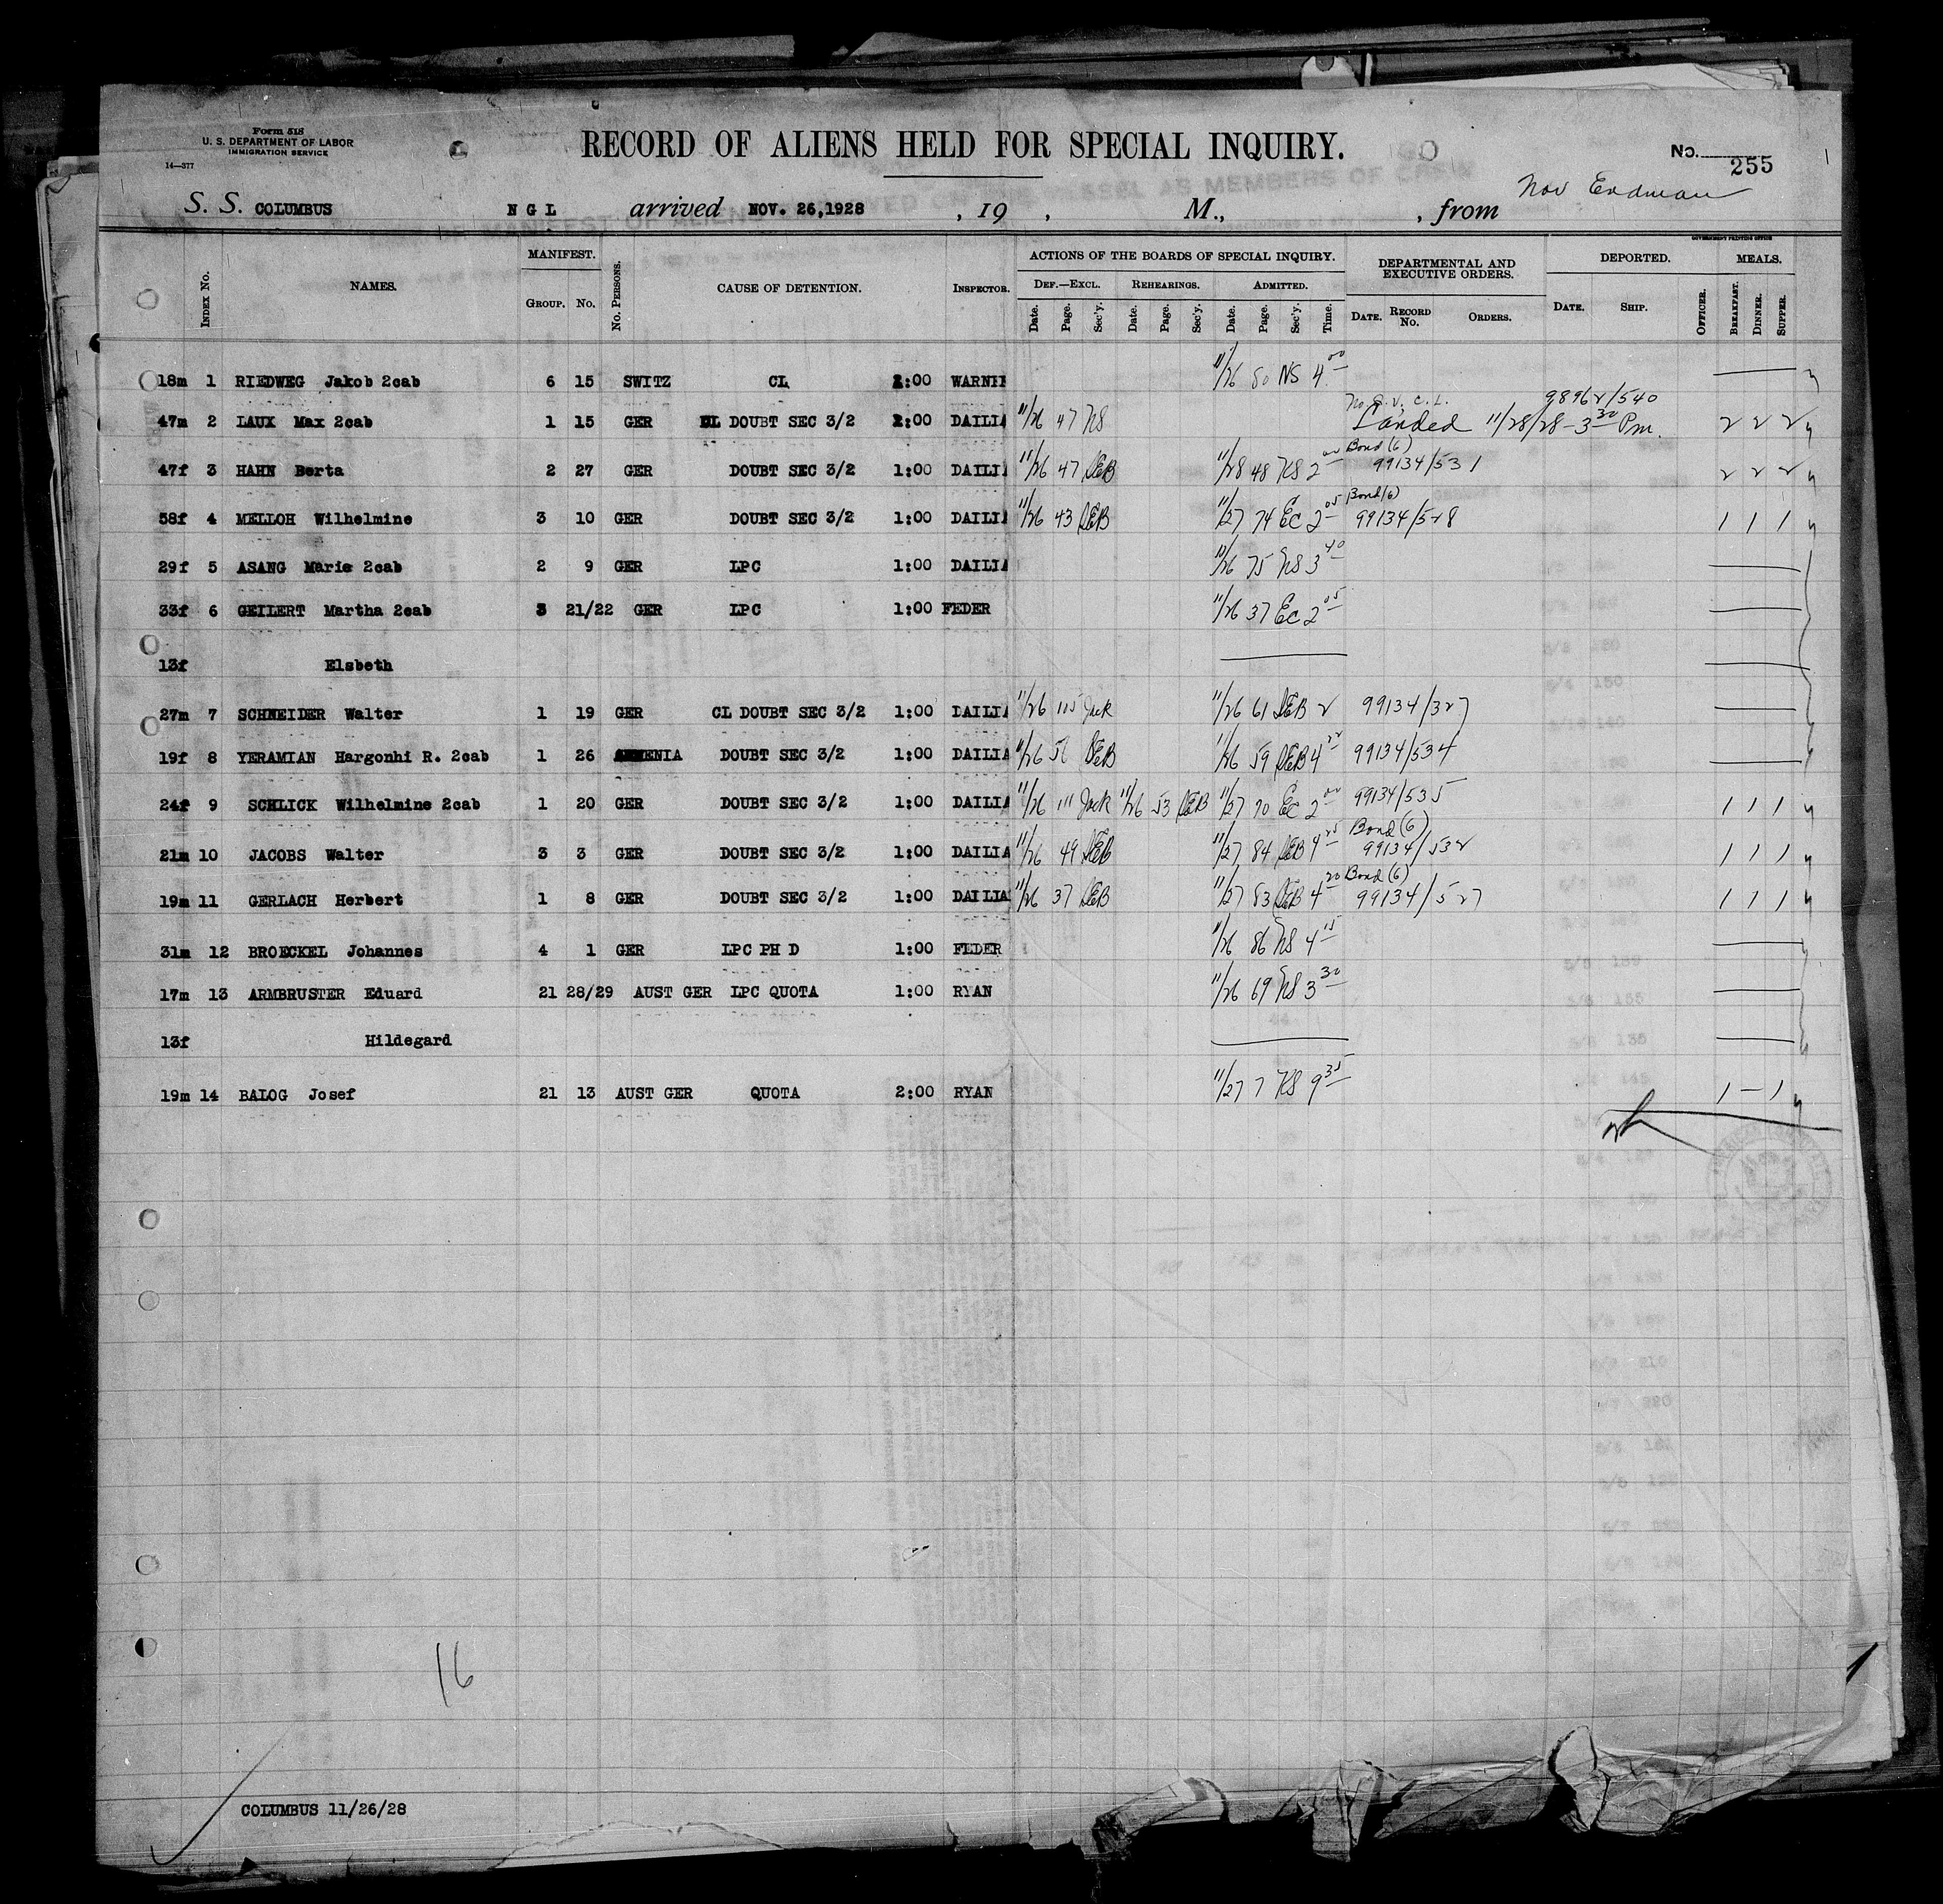 Form 518
U. S. DEPARTMENT OF LABOR
IMMIGRATION SERVICE
14—377
RECORD OF ALIENS HELD FOR SPECIAL INQUIRY.
No. 255
S. S. COLUMBUS N G L arrived NOV. 26,1928 , 19 , M., , from Nov Erdman
GOVERNMENT PRINTING OFFICE
INDEX NO. NAMES. MANIFEST. GROUP. NO. NO. PERSONS. CAUSE OF DETENTION. INSPECTOR. ACTIONS OF THE BOARDS OF SPECIAL INQUIRY. DEPARTMENTAL AND EXECUTIVE ORDERS. DEPORTED. MEALS.
DEF.—EXCL. REHEARINGS. ADMITTED.
Date. Page. Sec'y. Date. Page. Sec'y. Date. Page. Sec'y. Time. DATE. RECORD No. ORDERS. DATE. SHIP. OFFICER. BREAKFAST. DINNER. SUPPER.
18m 1 RIEDWEG Jakob 2cab 6 15 SWITZ CL 2:00 WARNE 11/26 80 NS 4 00
98962/540
47m 2 LAUX Max 2cab 1 15 GER CL DOUBT SEC 3/2 2:00 DAILIA 11/26 47 NS Landed 11/28/28 - 3 30 Pm. 2 2 2
Bond (6)
47f 3 HAHN Berta 2 27 GER DOUBT SEC 3/2 1:00 DAILIA 11/26 47 SEB 11/28 48 KS 2 00 99134/531 2 2 2
Bond (6)
58f 4 MELLOH Wilhelmine 3 10 GER DOUBT SEC 3/2 1:00 DAILIA 11/26 43 SEB 11/27 74 EC 2 05 99134/528 1 1 1
29f 5 ASANG Marie 2cab 2 9 GER LPC 1:00 DAILIA 11/26 75 NS 3 40
33f 6 GEILERT Martha 2cab 3 21/22 GER LPC 1:00 FEDER 11/26 37 EC 2 05
13f Elsbeth
27m 7 SCHNEIDER Walter 1 19 GER CL DOUBT SEC 3/2 1:00 DAILIA 11/26 115 Jack 11/26 61 SEB 2 99134/327
19f 8 YERAMIAN Hargonhi R. 2cab 1 26 ARMENIA DOUBT SEC 3/2 1:00 DAILIA 11/26 51 SEB 11/26 59 SEB 4 99134/534
24f 9 SCHLICK Wilhelmine 2cab 1 20 GER DOUBT SEC 3/2 1:00 DAILIA 11/26 111 Jack 11/26 53 SEB 11/27 70 EC 2 00 99134/535 1 1 1
Bond (6)
21m 10 JACOBS Walter 3 3 GER DOUBT SEC 3/2 1:00 DAILIA 11/26 49 SEB 11/27 84 SEB 4 25 99134/532 1 1 1
Bond (6)
19m 11 GERLACH Herbert 1 8 GER DOUBT SEC 3/2 1:00 DAILIA 11/26 37 SEB 11/27 83 SEB 4 20 99134/527 1 1 1
31m 12 BROECKEL Johannes 4 1 GER LPC PH D 1:00 FEDER 11/26 86 NS 4 15
17m 13 ARMBRUSTER Eduard 21 28/29 AUST GER LPC QUOTA 1:00 RYAN 11/26 69 NS 3 30
13f Hildegard
19m 14 BALOG Josef 21 13 AUST GER QUOTA 2:00 RYAN 11/27 7 KS 9 35 1 — 1
16
COLUMBUS 11/26/28